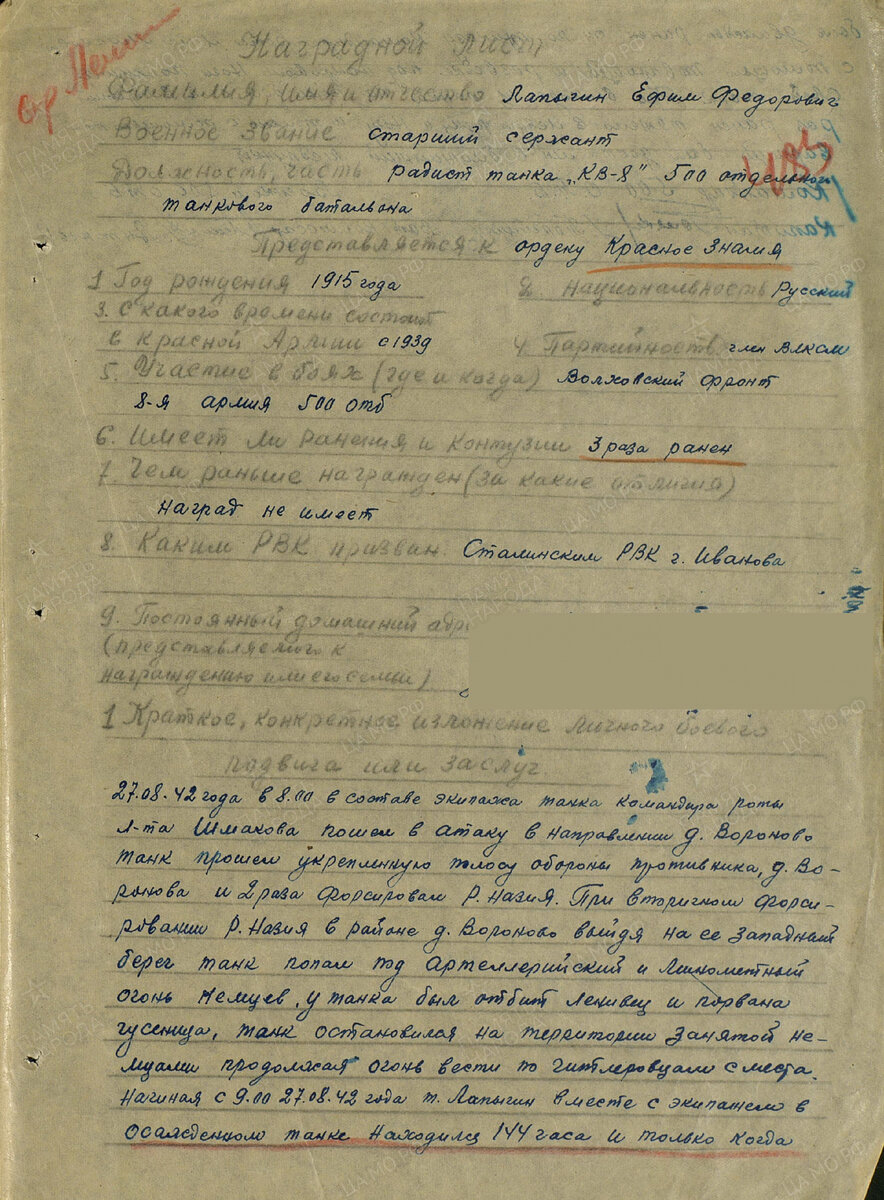 ор. Ленин
Наградной лист
Фамилия, имя и отчество Лапыгин Ефим Федорович
Военное звание старший сержант
Должность, часть радист танка „КВ-8" 500 отдельного
танкового батальона
Представляется к ордену Красное Знамя
1 Год рождения 1915 года 2. Национальность Русский
3. С какого времени состоит
в Красной Армии с 1939 4. Партийность член ВЛКСМ
5. Участие в боях (где и когда) Волховский фронт
8-я армия 500 отб
6. Имеет ли ранения и контузии 3 раза ранен
7. Чем раньше награжден (за какие отличия)
наград не имеет
8. Каким РВК призван Сталинским РВК г. Иванова
9. Постоянный домашний адре
(представляемого к
награждению или его семьи)
1 Краткое, конкретное изложение личного боевого
подвига или заслуг.
27.08.42 года в 8.00 в составе экипажа танка командира роты
л-та Шмакова пошел в атаку в направлении д. Вороново
танк прошел укрепленную полосу обороны противника, д. Во-
ронова и 2 раза форсировал р. Назия. При вторичном форси-
ровании р. Назия в районе д. Вороново выйдя на ее западный
берег танк попал под артеллерийский и минометный
огонь немцев, у танка был отбит ленивец и порвана
гусеница, танк остановился на территории занятой не-
мцами продолжая огонь вести по гитлеровцам с места.
Начиная с 9.00 27.08.42 года т. Лапыгин вместе с экипажем в
осажденном танке находился 144 часа и только когда